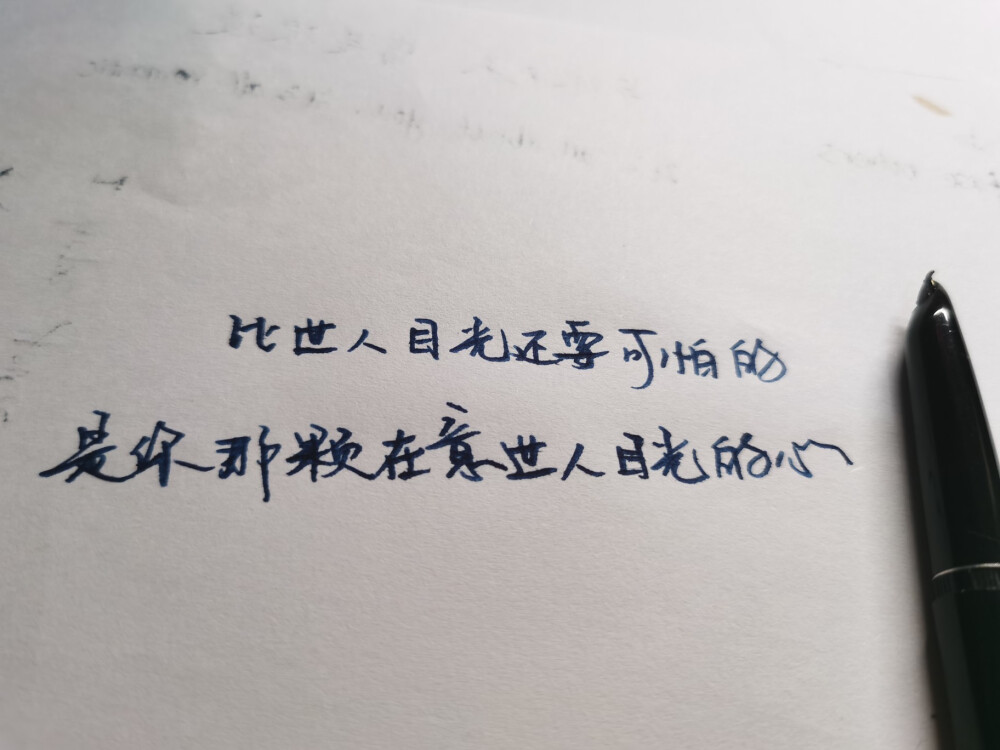 比世人目光还要可怕的
是你那颗在意世人目光的心